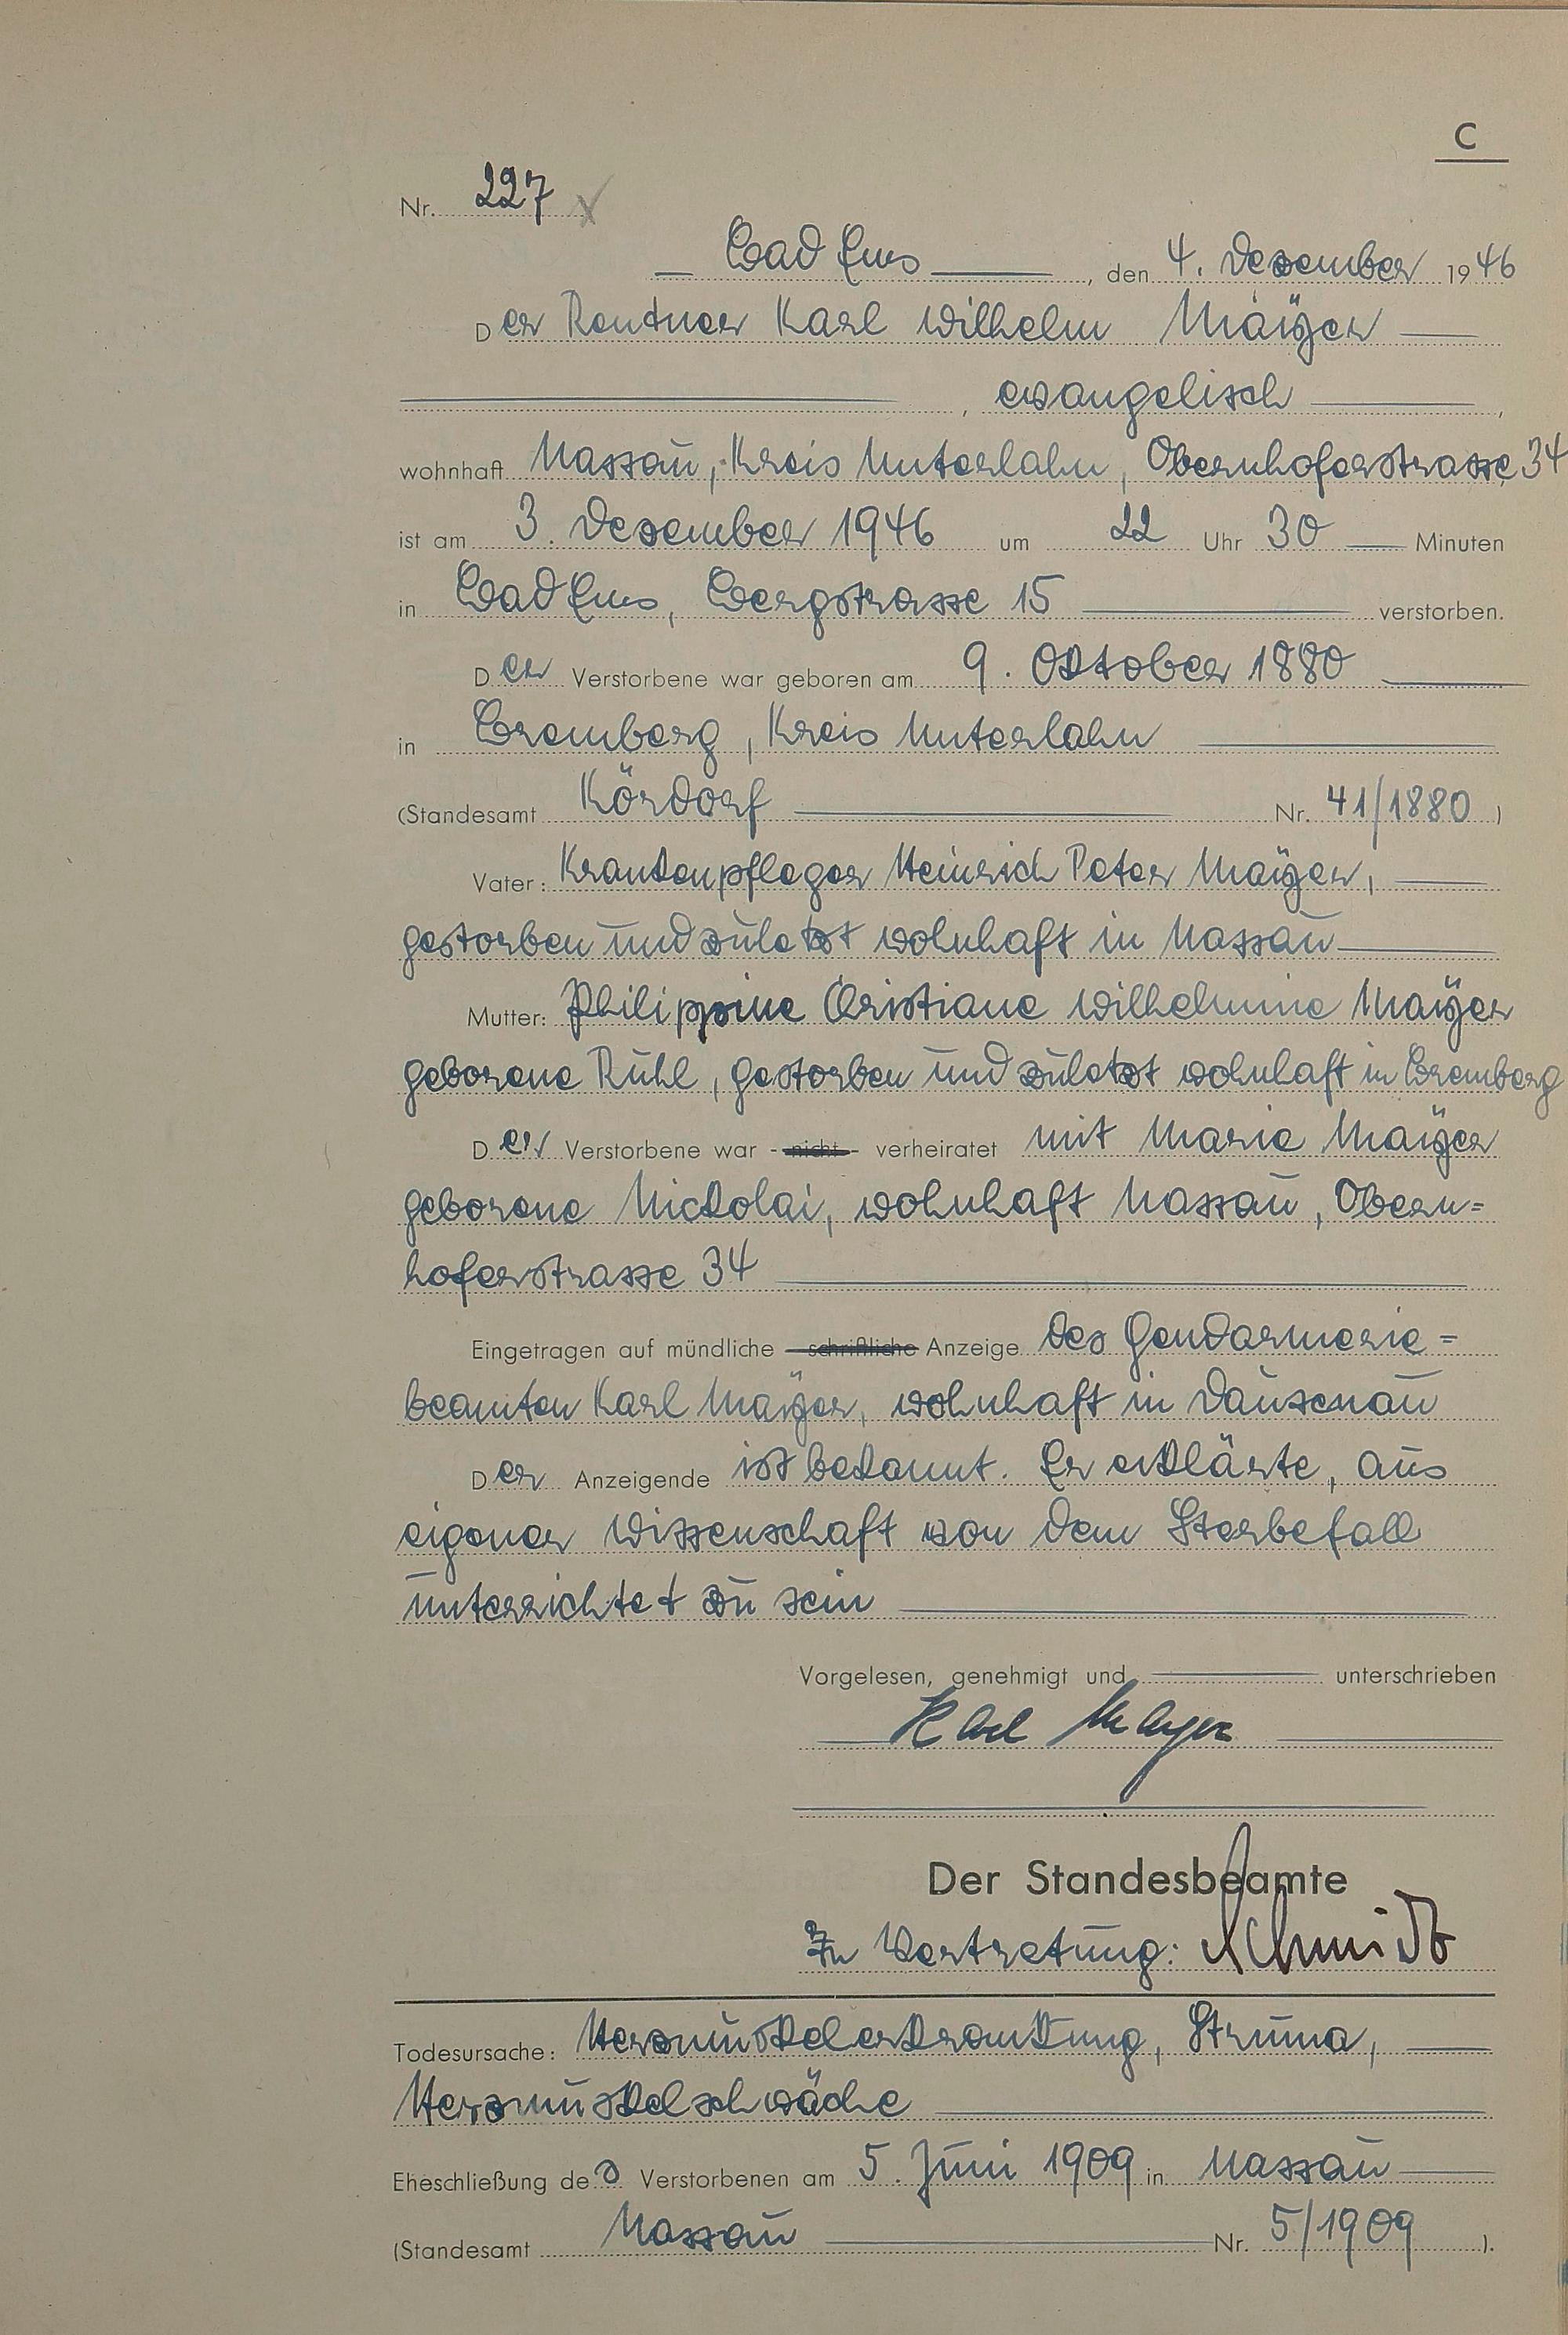 C
Nr. 227
Bad Ems, den 4. Dezember 1946
Der Rentner Karl Wilhelm Maÿer
, evangelisch,
wohnhaft Nassau, Kreis Unterlahn, Obernhoferstrasse 34
ist am 3. Dezember 1946 um 22 Uhr 30 Minuten
in Bad Ems, Bergstrasse 15 verstorben.
Der Verstorbene war geboren am 9. Oktober 1880
in Bremberg, Kreis Unterlahn
(Standesamt Kördorf Nr. 41/1880)
Vater: Krankenpfleger Heinrich Peter Maÿer,
gestorben und zuletzt wohnhaft in Nassau
Mutter: Philippine Cristiane Wilhelmine Maÿer
geborene Rühl, gestorben und zuletzt wohnhaft in Bremberg
Der Verstorbene war - nicht - verheiratet mit Marie Maÿer
geborene Nickolai, wohnhaft Nassau, Obern=
hoferstrasse 34
Eingetragen auf mündliche - schriftliche Anzeige des Gendarmerie=
beamten Karl Maÿer, wohnhaft in Dausenau
Der Anzeigende ist bekannt. Er erklärte, aus
eigener Wissenschaft von dem Sterbefall
unterrichtet zu sein
Vorgelesen, genehmigt und unterschrieben
Karl Mayer
Der Standesbeamte
In Vertretung: Schmidt
Todesursache: Herzmuskelerkrankung, Struma,
Herzmuskelschwäche
Eheschließung des Verstorbenen am 5. Juni 1909 in Nassau
(Standesamt Nassau Nr. 5/1909).